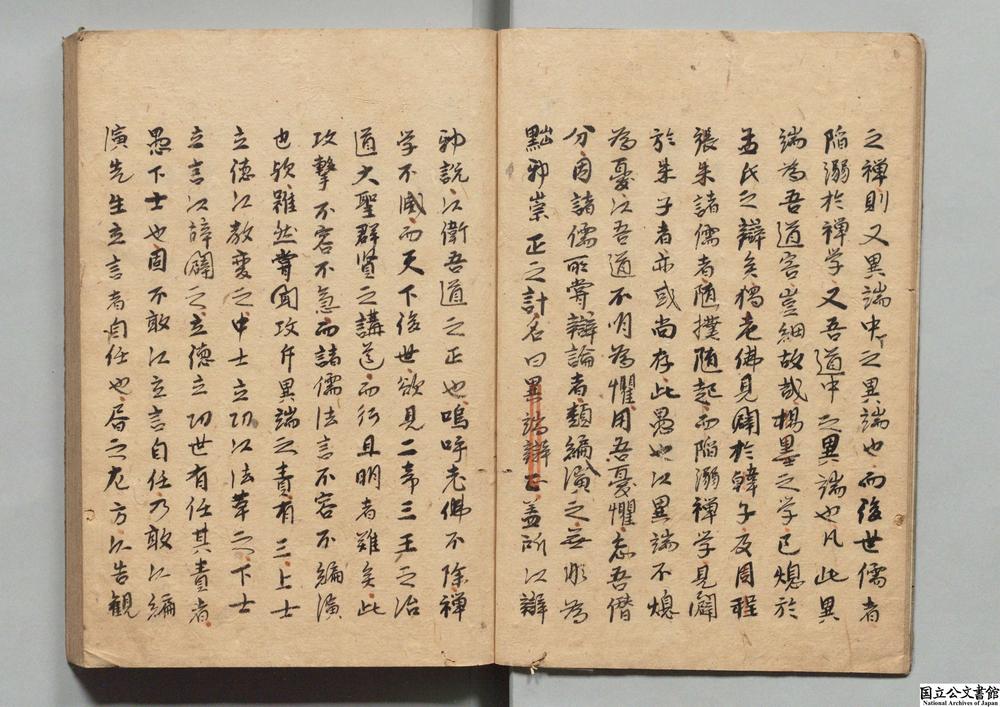 之禅則又異端中之異端也而後世儒者
陥溺於禅学又吾道中之異端也凡此異
端為吾道害豈細故哉楊墨之学已熄於
孟氏之辯矣独老佛見闢於韓子及周程
張朱諸儒者随撲随起而陥溺禅学見闢
於朱子者亦或尚存此愚也以異端不熄
為憂以吾道不明為懼用吾憂懼忘吾僭
分因諸儒所嘗辯論者類編演之無非為
黜邪崇正之計名曰異端辯正盖所以辯
邪説以衛吾道之正也嗚呼老佛不除禅
学不滅而天下後世欲見二帝三王之治
道大聖群賢之講道而行且明者難矣此
攻撃不容不急而諸儒法言不容不編演
也欤雖然嘗聞攻斥異端之責有三上士
立徳以教変之中士立功以法革之下士
立言以辞闢之立徳立功世有任其責者
愚下士也固不敢以立言自任乃敢以編
演先生立言者自任也居之尤方以告観
国立公文書館
National Archives of Japan